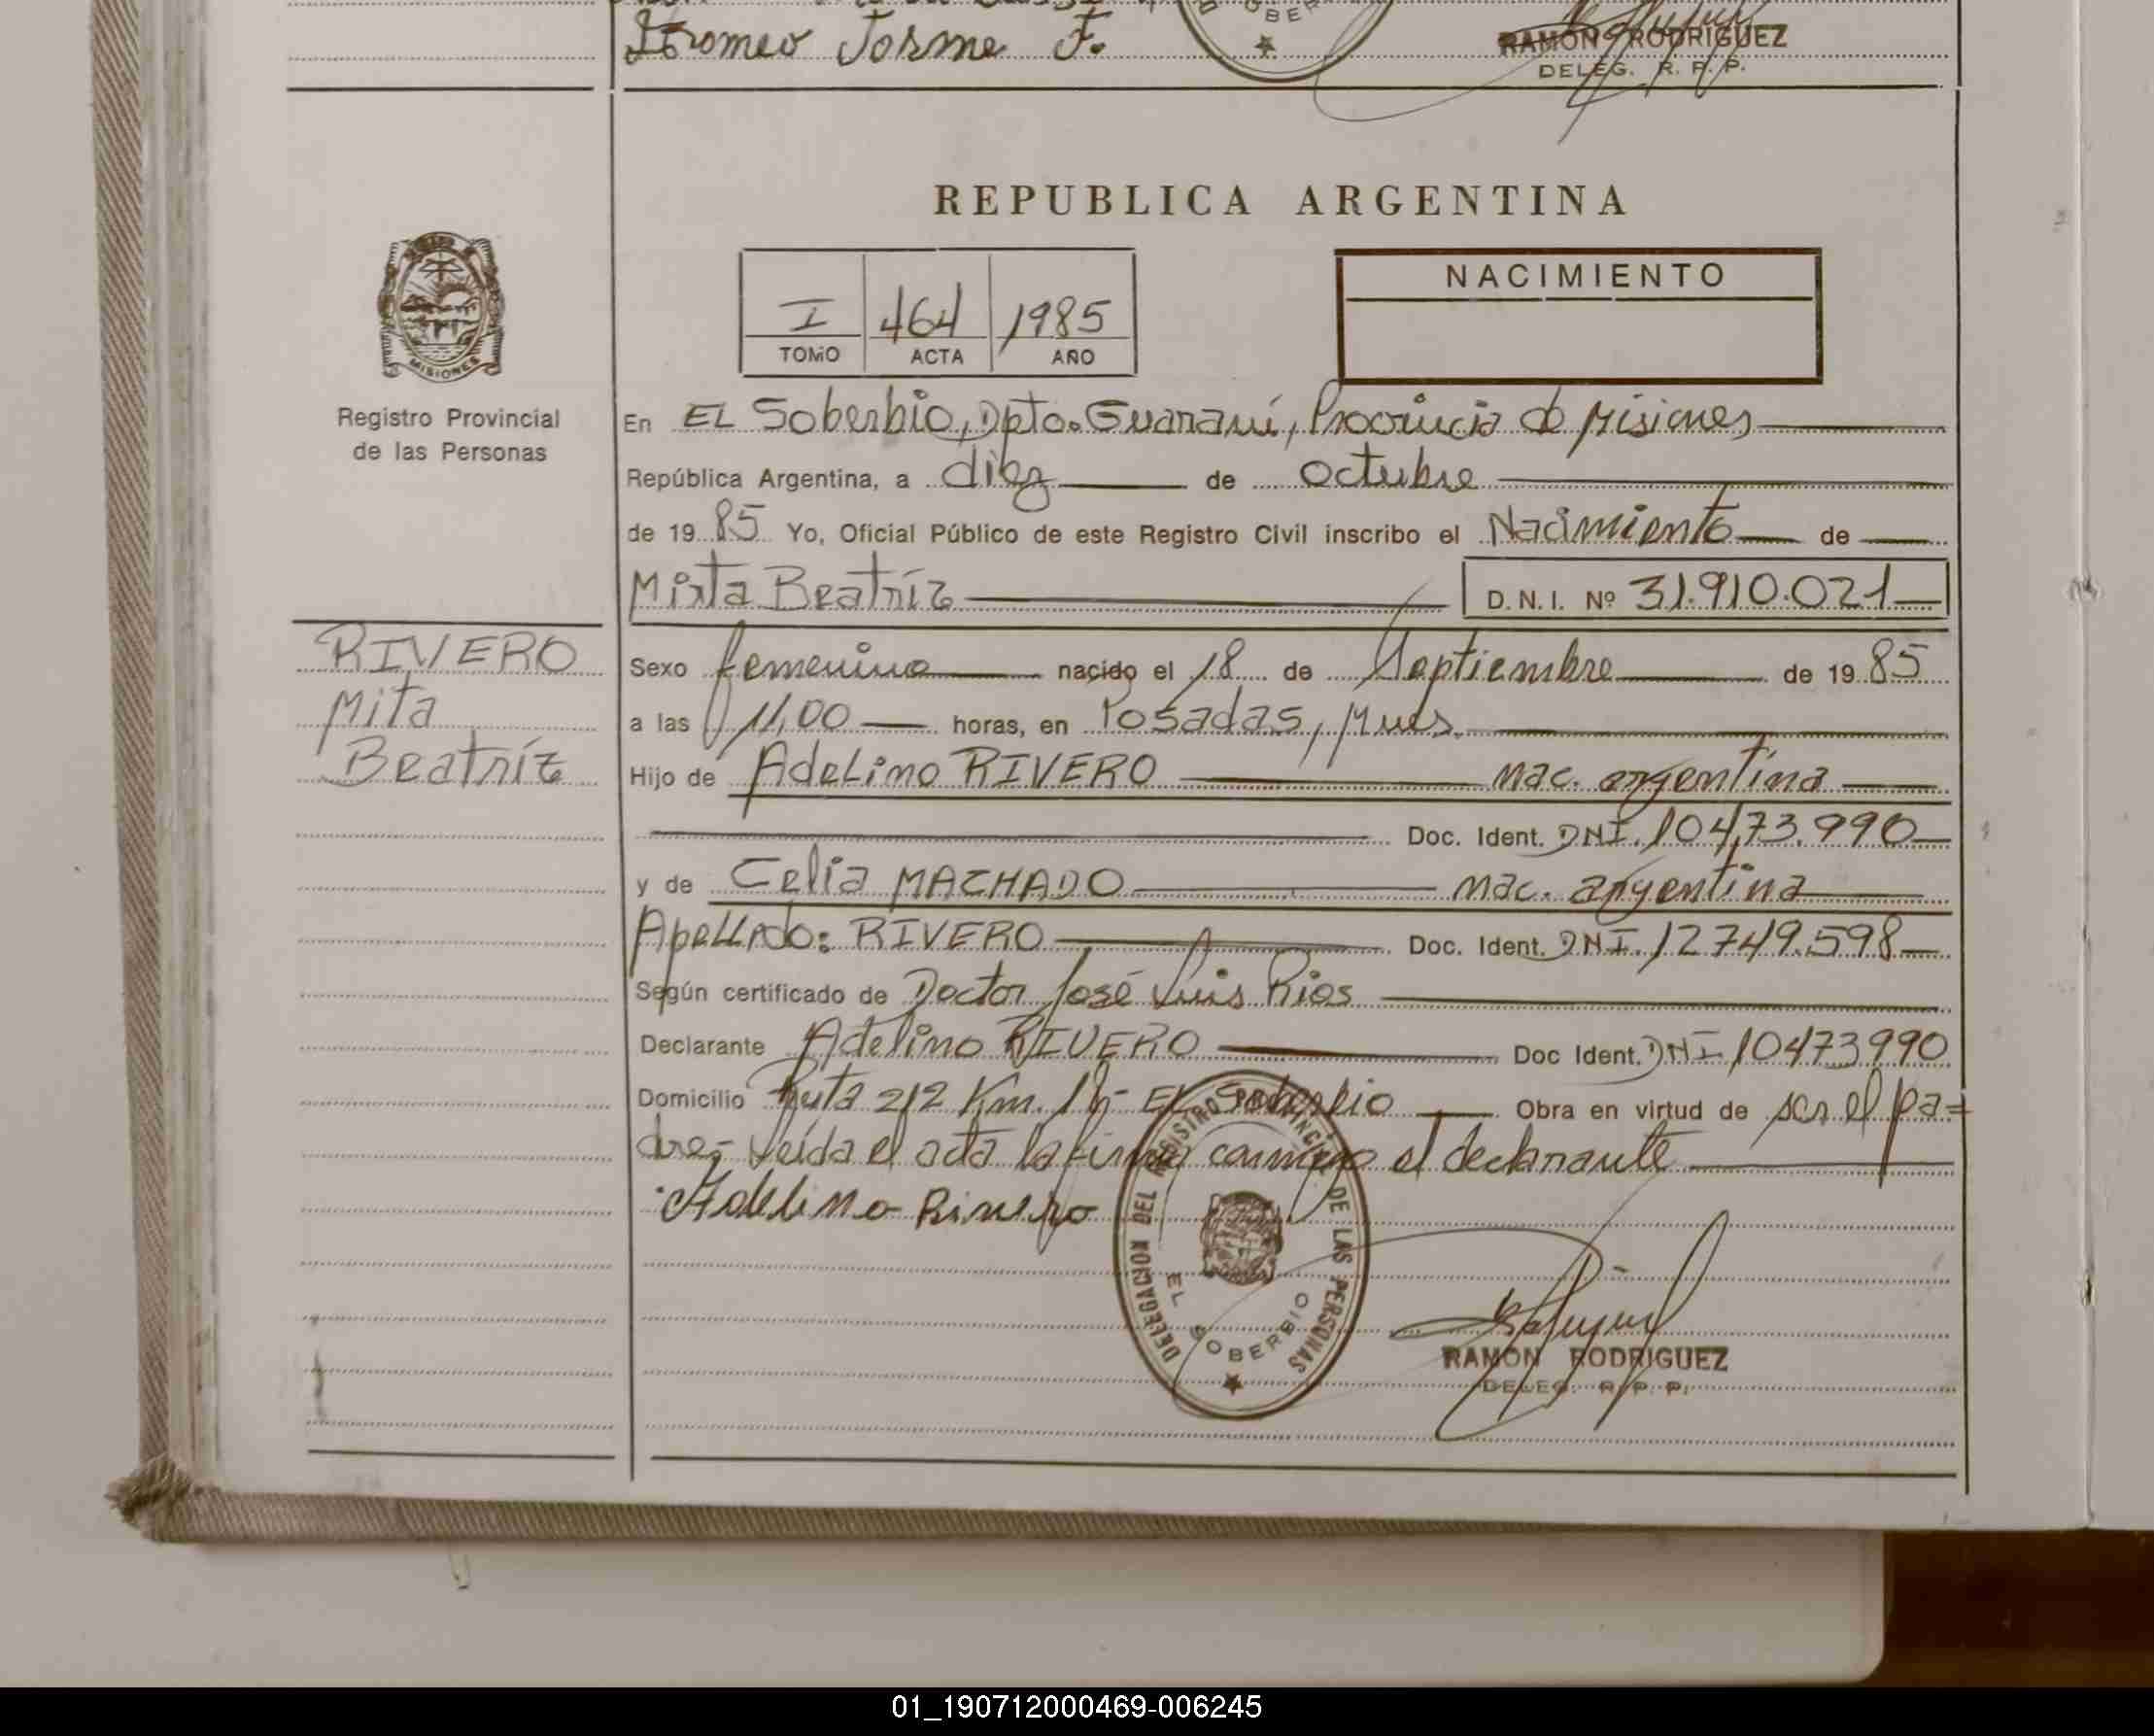 Romeo Jorme F.
RAMON RODRIGUEZ
DELEG. R. P. P.
REPUBLICA ARGENTINA
MISIONES
Registro Provincial
de las Personas
I 464 1985
TOMO ACTA AÑO
NACIMIENTO
En EL Soberbio, Dpto. Guaraní, Provincia de Misiones
República Argentina, a diez de octubre
de 19 85 Yo, Oficial Público de este Registro Civil inscribo el Nacimiento de
Mirta Beatríz D.N.I. Nº 31.910.021
RIVERO
Mita
Beatríz
Sexo femenino nacido el 18 de Septiembre de 19 85
a las 11,00 horas, en Posadas, Mnes.
Hijo de Adelino RIVERO nac. argentina
Doc. Ident. DNI. 10473.990
y de Celia MACHADO nac. argentina
Apellido: RIVERO Doc. Ident. DNI. 12749.598
Según certificado de Doctor José Luis Rios
Declarante Adelino RIVERO Doc Ident. DNI 10473990
Domicilio Ruta 212 Km. EL Soberbio Obra en virtud de ser el pa=
dre- Leída el acta la firma conmigo el declarante
Adelino Rivero
DELEGACION DEL REGISTRO PROVINCIAL DE LAS PERSONAS
EL SOBERBIO
RAMON RODRIGUEZ
DELEG. R. P. P.
01_190712000469-006245